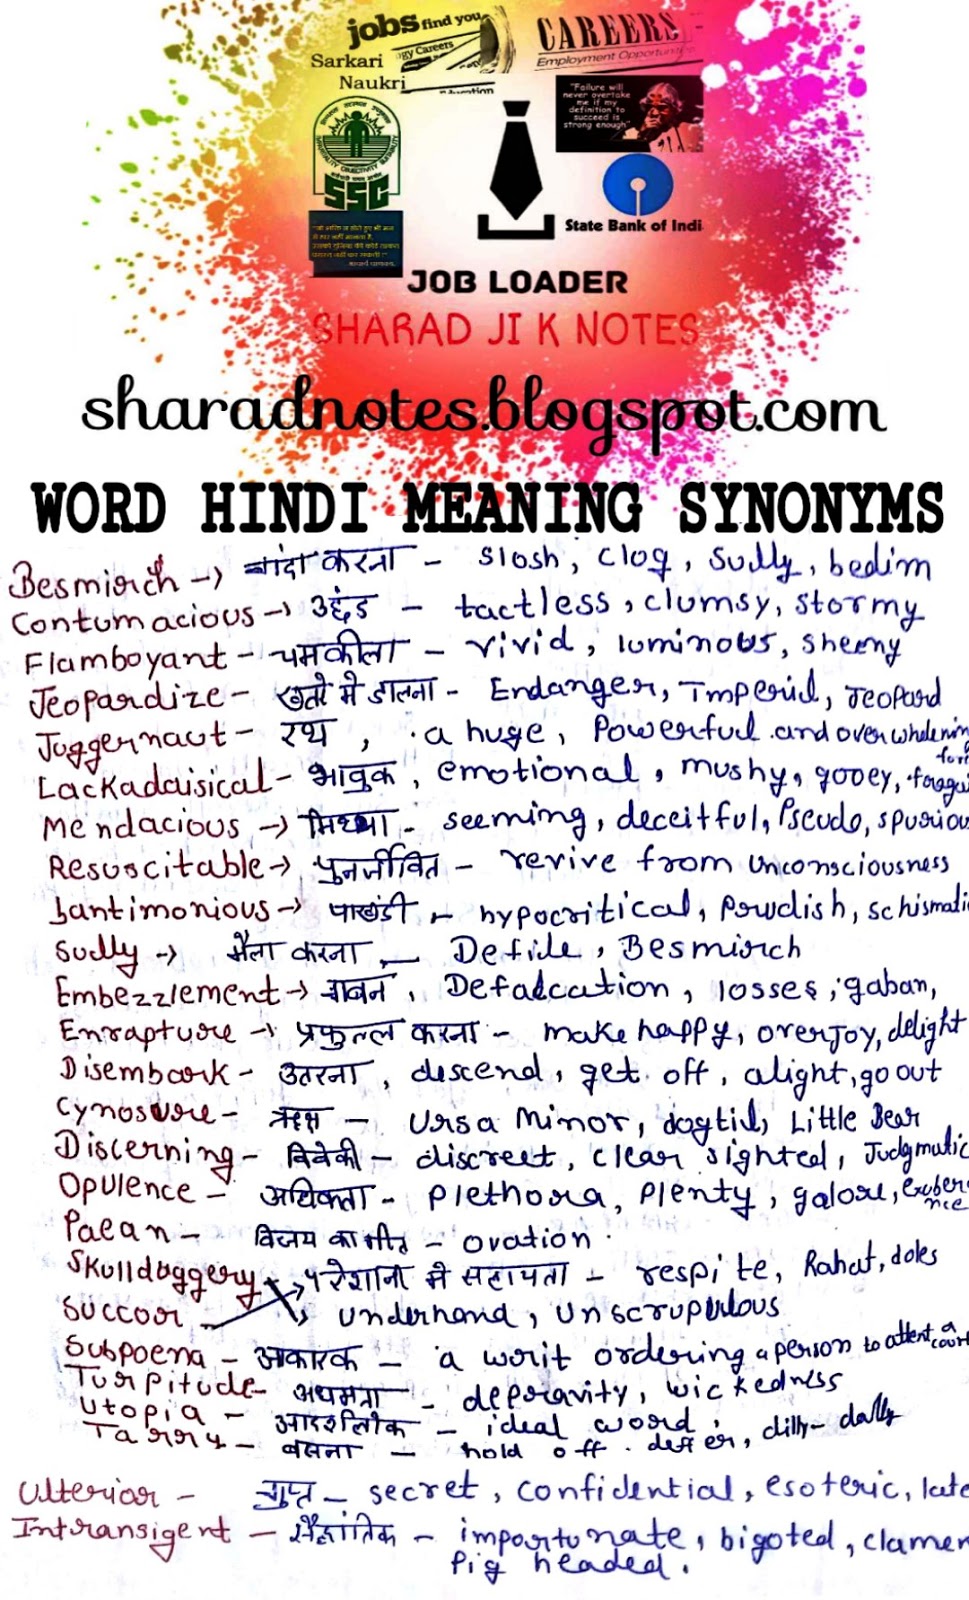 jobs find you
CAREERS
gy Careers
Employment Opportunities
Sarkari
Naukri
"Failure will
never overtake
me if my
definition to
succeed is
strong enough"
SSC
State Bank of Indi
JOB LOADER
SHARAD JI K NOTES
sharadnotes.blogspot.com
WORD HINDI MEANING SYNONYMS
Besmirch → गंदा करना - slosh, clog, sully, bedim
Contumacious → उद्दंड - tactless, clumsy, stormy
Flamboyant - चमकीला - vivid, luminous, sheeny
Jeopardize - खतरे मे डालना - Endanger, Imperid, Jeopard
Juggernaut - रथ, a huge, Powerful and overwhelming
Lackadaisical - भावुक, emotional, mushy, gooey,
Mendacious → मिथ्या - seeming, deceitful, Pseudo, spuriou
Resuscitable → पुनर्जीवित - revive from unconsciousness
Santimonious → पाखंडी - hypocritical, Powdish, schismati
Sully → मैला करना - Defile, Besmirch
Embezzlement → गबन, Defalcation, losses, gaban,
Enrapture → प्रफुल्ल करना - make happy, overjoy, delight
Disembark - उतरना, descend, get off, alight, go out
Cynosure - - Ursa Minor, dogtid, Little Bear
Discerning - विवेकी - discreet, clear sighted, Judgmatic
Opulence - अधिकता - Plethora, Plenty, galore, exuber
nce
Paean - विजय का गीत - ovation
Skullduggery परेशानी मे सहायता - respite, Rahat, doles
Succor underhand, unscrupulous
Subpoena - आकारक - a writ ordering a person to attent a
court
Turpitude - अधमता - depravity, wickedness
Utopia - आदर्शलोक - ideal word
Tarry - बसना - hold off. deffer, dilly-dally
Ulterior - गुप्त - secret, confidential, esoteric, late
Intransigent - सैद्धांतिक - importunate, bigoted, clamer
Pig headed.